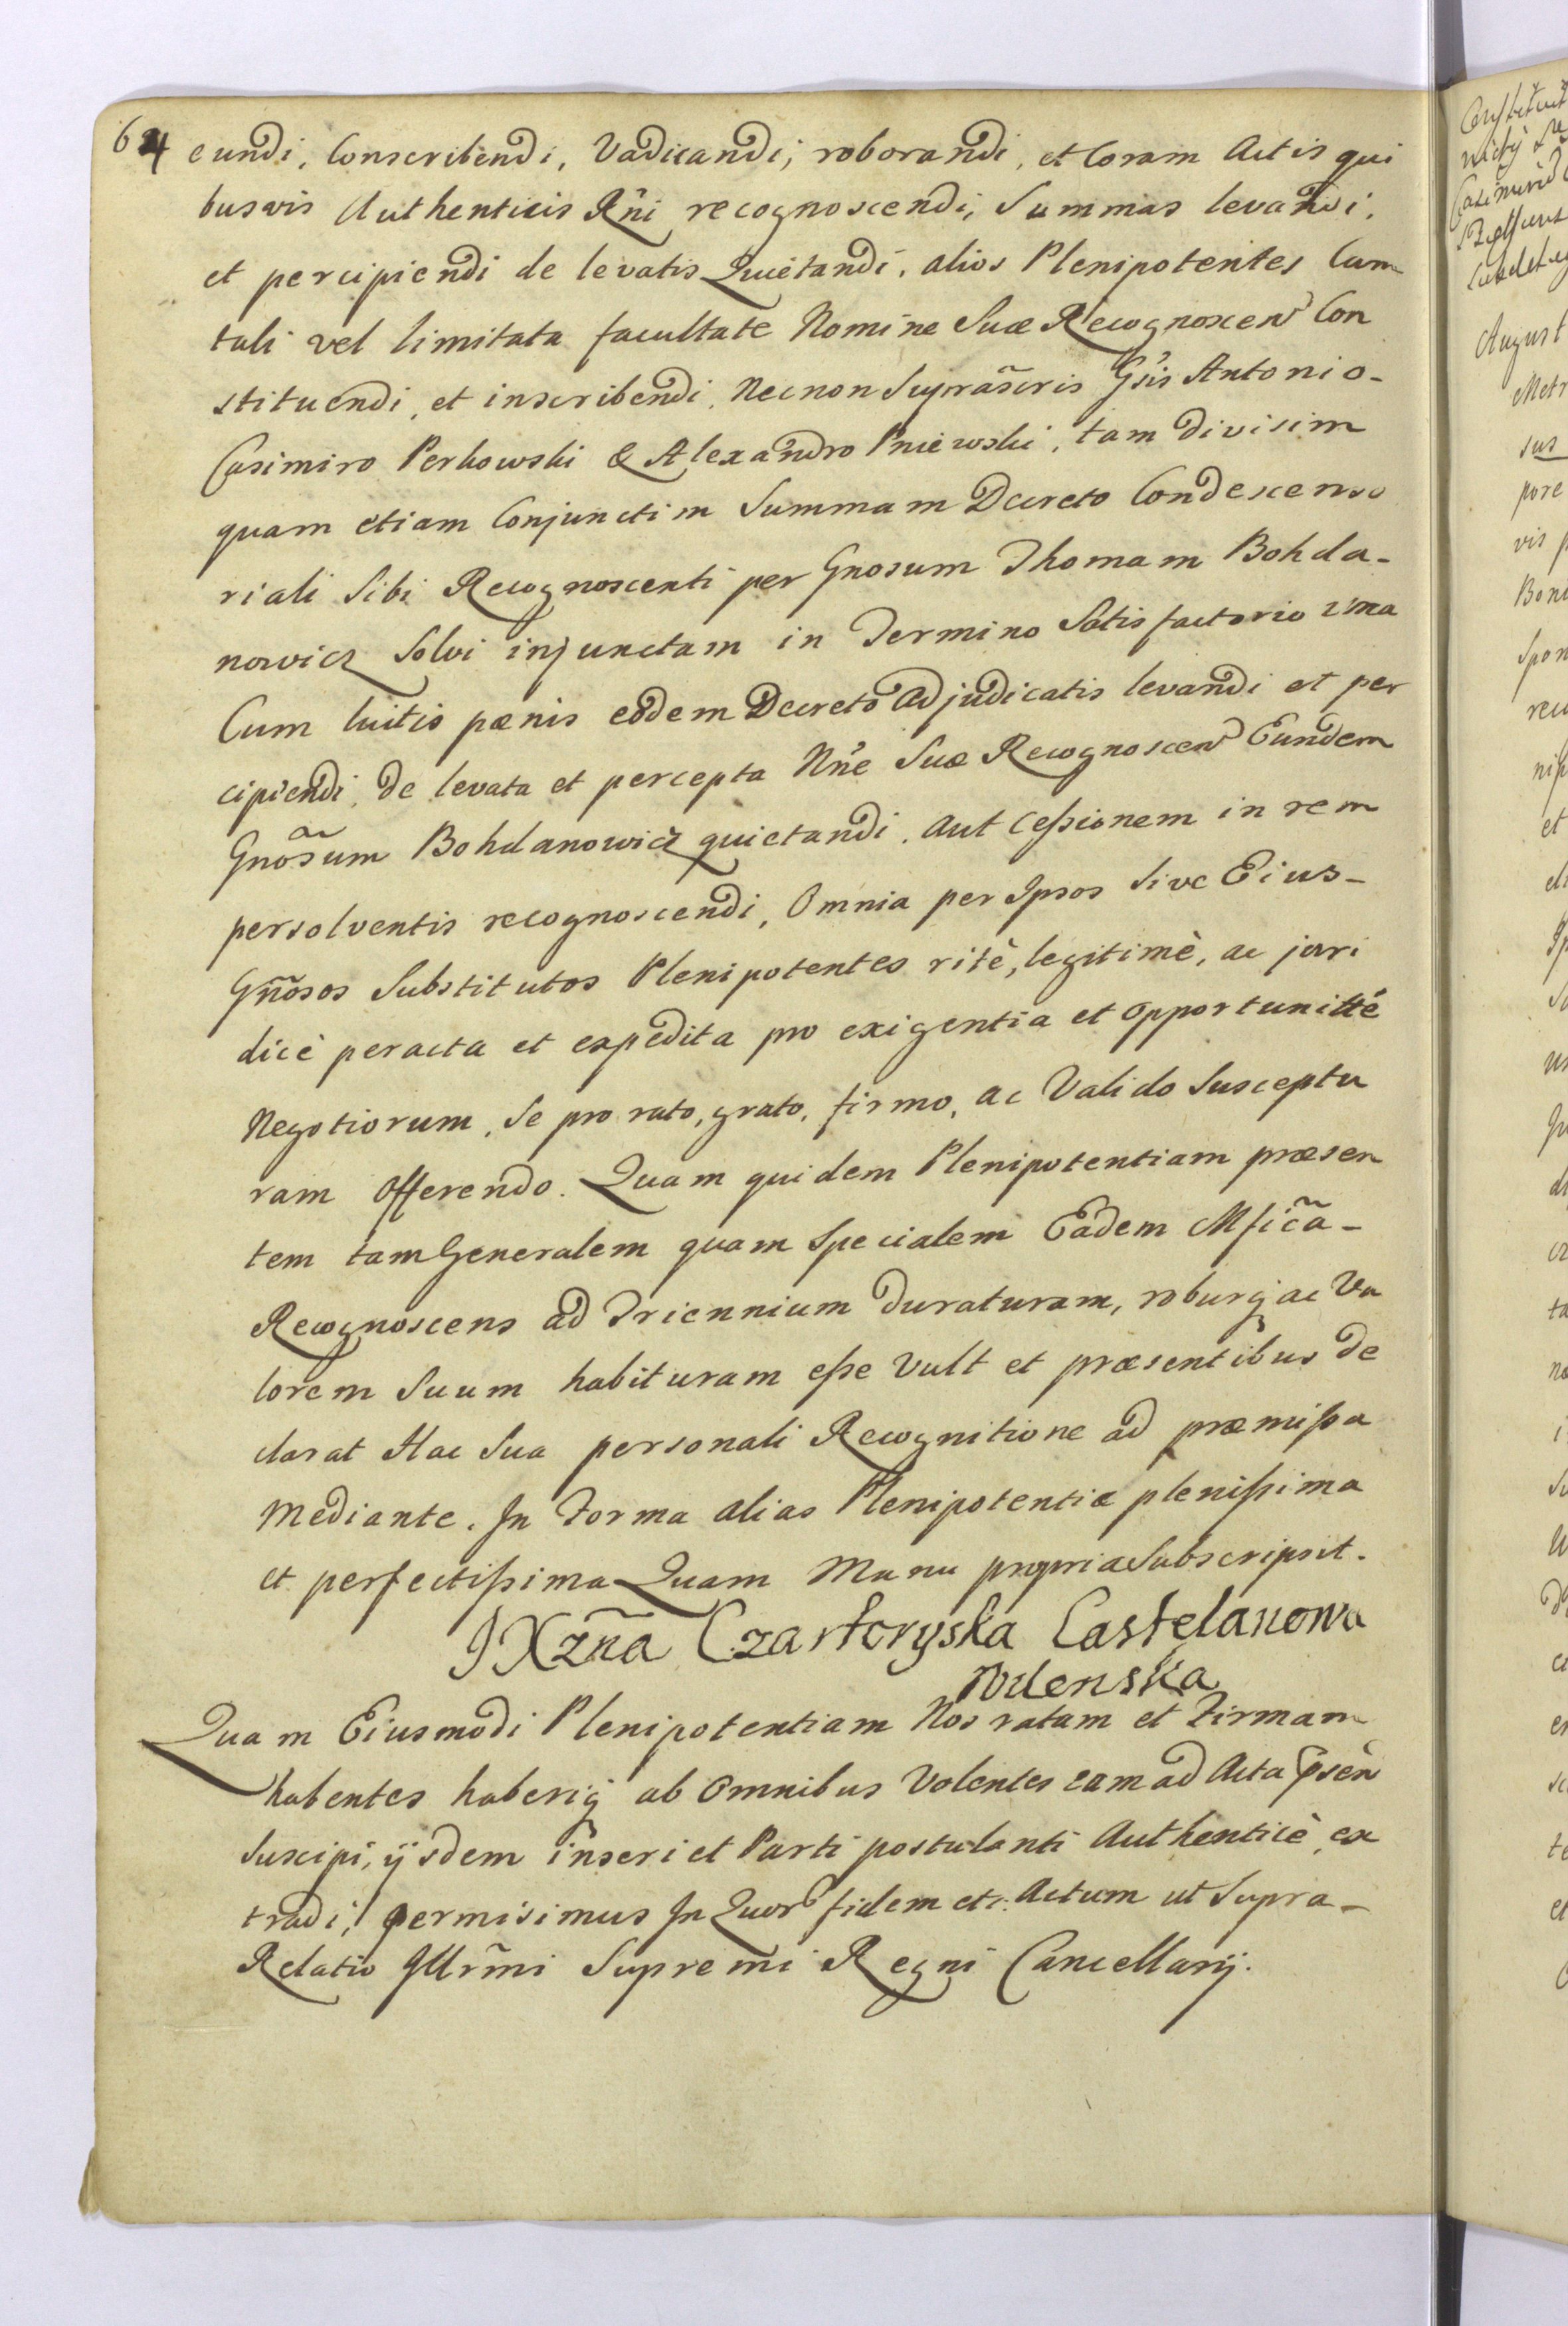 64
eundi, Conscribendi, Vadicandi, roborandi, et Coram Actis qui
busvis Authenticis Rñi recognoscendi, Summas levandi,
et percipiendi de levatis Quietandi, alios Plenipotentes Cum
tali vel limitata facultate Nomine Suæ Recognoscen Con
stituendi, et inscribendi, Necnon Supràscris Gsis Antonio-
Casimiro Perkowski & Alexandro Pniewski, tam divisim
quam etiam Conjunctim Summam Decreto Condescenso
riali Sibi Recognoscenti per Gnosum Thomam Bohda-
nowicz Solvi injunctam in Termino Satisfactorio una
Cum luitis pænis eodem Decreto Adjudicatis levandi et per
cipiendi, de levata et percepta Nñe Suæ Recognoscen Eundem
Gnõsum Bohdanowicz quietandi, aut Ceßionem in rem
persolventis recognoscendi, Omnia per Ipsos Sive Eius-
Gñosos Substitutos Plenipotentes ritè, legitimè, ac juri
dicè peracta et expedita pro exigentia et opportunitté
Negotiorum, Se pro rato, grato, firmo, ac Valido Susceptu
ram Offerendo. Quam quidem Plenipotentiam præsen
tem tam Generalem quam Specialem Eadem Mficã-
Recognoscens ad Triennium duraturam, roburq ac Va
lorem Suum habituram eße Vult et præsentibus de
clarat Hac Sua personali Recognitione ad præmißa
Mediante. In Forma alias Plenipotentiæ plenißima
et perfectißima Quam Manu propria Subscripsit.
J X zña Czartoryska Castelanowa
Wilenska
Quam Eiusmodi Plenipotentiam Nos ratam et Firmam
habentes haberiq ab Omnibus Volentes eam ad Acta pśen
Suscipi, ijsdem inseri et Parti postulanti Authenticè ex
tradi, permisimus In Quor fidem etc. Actum ut Supra-
Relatio Jllrmi Supremi Regni Cancellarij.
August
Metr
sus
pore
vis
et